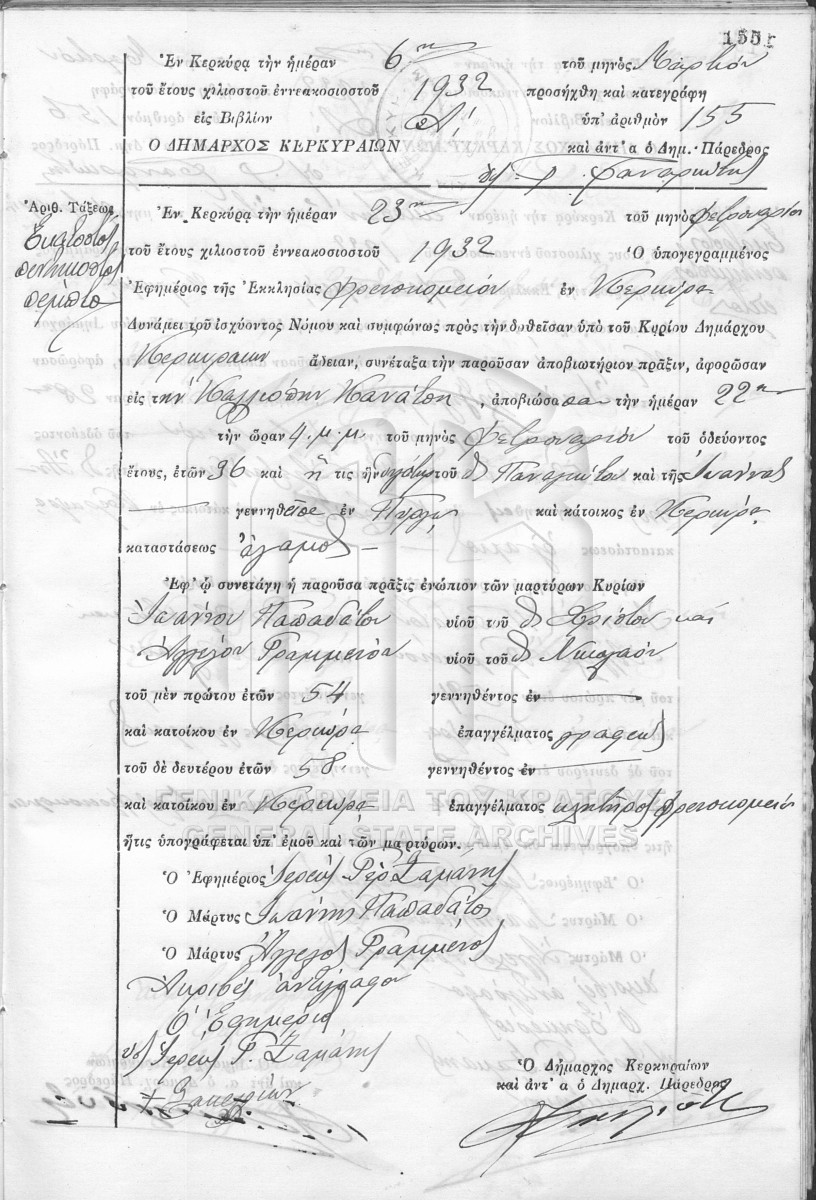 155
Ἐν Κερκύρᾳ τὴν ἡμέραν 6ην τοῦ μηνὸς Μαρτίου
τοῦ ἔτους χιλιοστοῦ ἐννεακοσιοστοῦ 1932 προσήχθη καὶ κατεγράφη
εἰς Βιβλίον Α! ὑπ' ἀριθμὸν 155
Ο ΔΗΜΑΡΧΟΣ ΚΕΡΚΥΡΑΙΩΝ καὶ ἀντ' α ὁ Δημ. Πάρεδρος
Ἀριθ. Τάξεως
Ἑκατοστὸς
πεντηκοστὸς
πέμπτος
Ἐν Κερκύρᾳ τὴν ἡμέραν 23ην τοῦ μηνὸς Φεβρουαρίου
τοῦ ἔτους χιλιοστοῦ ἐννεακοσιοστοῦ 1932 Ὁ ὑπογεγραμμένος
Ἐφημέριος τῆς Ἐκκλησίας Φρενοκομείου ἐν Κερκύρᾳ
Δυνάμει τοῦ ἰσχύοντος Νόμου καὶ συμφώνως πρὸς τὴν δοθεῖσαν ὑπὸ τοῦ Κυρίου Δημάρχου
Κερκυραίων ἄδειαν, συνέταξα τὴν παροῦσαν ἀποβιωτήριον πρᾶξιν, ἀφορῶσαν
εἰς τὴν Καλλιόπην Κανάτση, ἀποβιώσασαν τὴν ἡμέραν 22ην
τὴν ὥραν 4 μ.μ. τοῦ μηνὸς Φεβρουαρίου τοῦ ὁδεύοντος
ἔτους, ἐτῶν 36 καὶ ἥτις ἦν θυγάτηρ τοῦ Παναγιώτου καὶ τῆς Ἰωάννας
γεννηθεῖσα ἐν Πύργῳ καὶ κάτοικος ἐν Κερκύρᾳ
καταστάσεως ἄγαμος
Ἐφ' ᾧ συνετάγη ἡ παροῦσα πρᾶξις ἐνώπιον τῶν μαρτύρων Κυρίων
Ἰωάννου Παπαδάτου υἱοῦ τοῦ Χρίστου καὶ
Ἀγγέλου Γραμμένου υἱοῦ τοῦ Νικολάου
τοῦ μὲν πρώτου ἐτῶν 54 γεννηθέντος ἐν
καὶ κατοίκου ἐν Κερκύρᾳ ἐπαγγέλματος γραφεὺς
τοῦ δὲ δευτέρου ἐτῶν 58 γεννηθέντος ἐν
καὶ κατοίκου ἐν Κερκύρᾳ ἐπαγγέλματος κλητῆρος Φρενοκομείου
ΓΕΝΙΚΑ ΑΡΧΕΙΑ ΤΟΥ ΚΡΑΤΟΥΣ
GENERAL STATE ARCHIVES
ἥτις ὑπογράφεται ὑπ' ἐμοῦ καὶ τῶν μαρτύρων.
Ὁ Ἐφημέριος Ἱερεὺς Γερ. Ζαμάνης
Ὁ Μάρτυς Ἰωάννης Παπαδάτος
Ὁ Μάρτυς Ἄγγελος Γραμμένος
Ἀκριβὲς ἀντίγραφον
Ὁ Ἐφημέριος
Ἱερεὺς Γ. Ζαμάνης
Ὁ Δήμαρχος Κερκυραίων
καὶ ἀντ' α ὁ Δημαρχ. Πάρεδρος